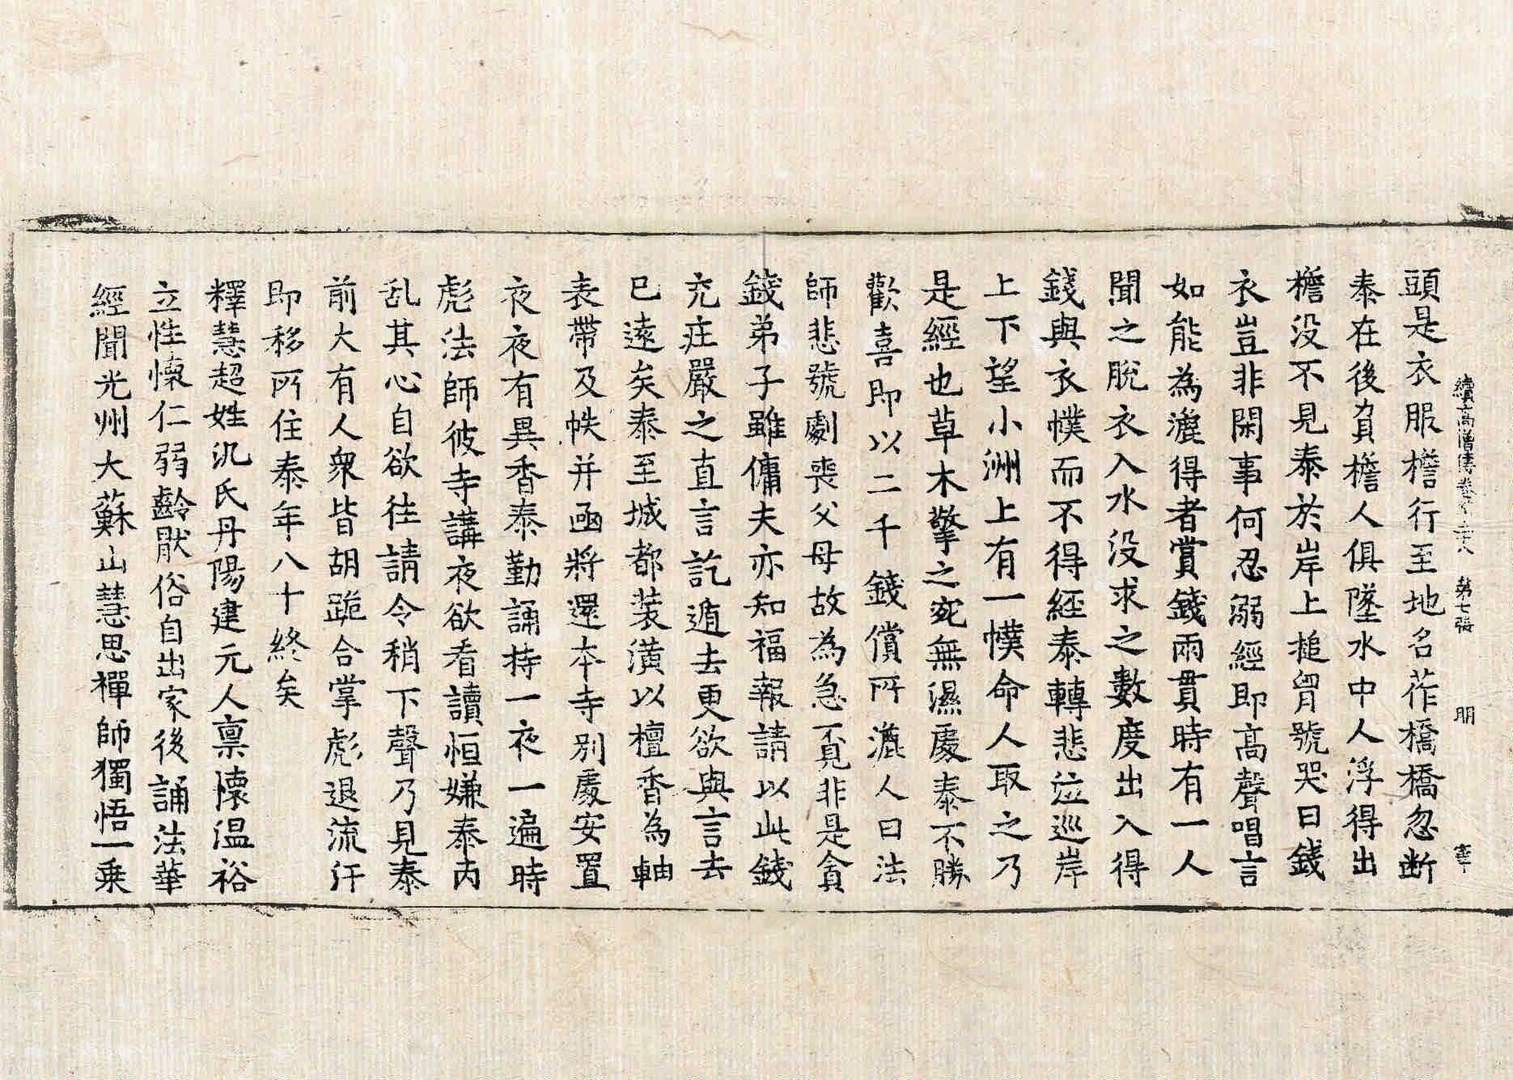 續高僧傳卷第二十八 第七張 明 寧
頭是衣服檐行至地名莋橋橋忽断
泰在後負檐人俱墜水中人浮得出
檐没不見泰於岸上搥胷號哭曰錢
衣豈非閑事何忍溺經即高聲唱言
如能為漉得者賞錢兩貫時有一人
聞之脫衣入水没求之數度出入得
錢與衣幞而不得經泰轉悲泣巡岸
上下望小洲上有一幞命人取之乃
是經也草木擎之宛無濕處泰不勝
歡喜即以二千錢償所漉人曰法
師悲號劇喪父母故為急覓非是貪
錢弟子雖傭夫亦知福報請以此錢
充庄嚴之直言訖遁去更欲與言去
已遠矣泰至城都装潢以檀香為軸
表帶及帙并函將還本寺別處安置
夜夜有異香泰勤誦持一夜一遍時
彪法師彼寺講夜欲看讀恒嫌泰内
乱其心自欲往請令稍下聲乃見泰
前大有人衆皆胡跪合掌彪退流汗
即移所住泰年八十終矣
釋慧超姓汎氏丹陽建元人禀懷温裕
立性懷仁弱齡猒俗自出家後誦法華
經聞光州大蘇山慧思禪師獨悟一乗